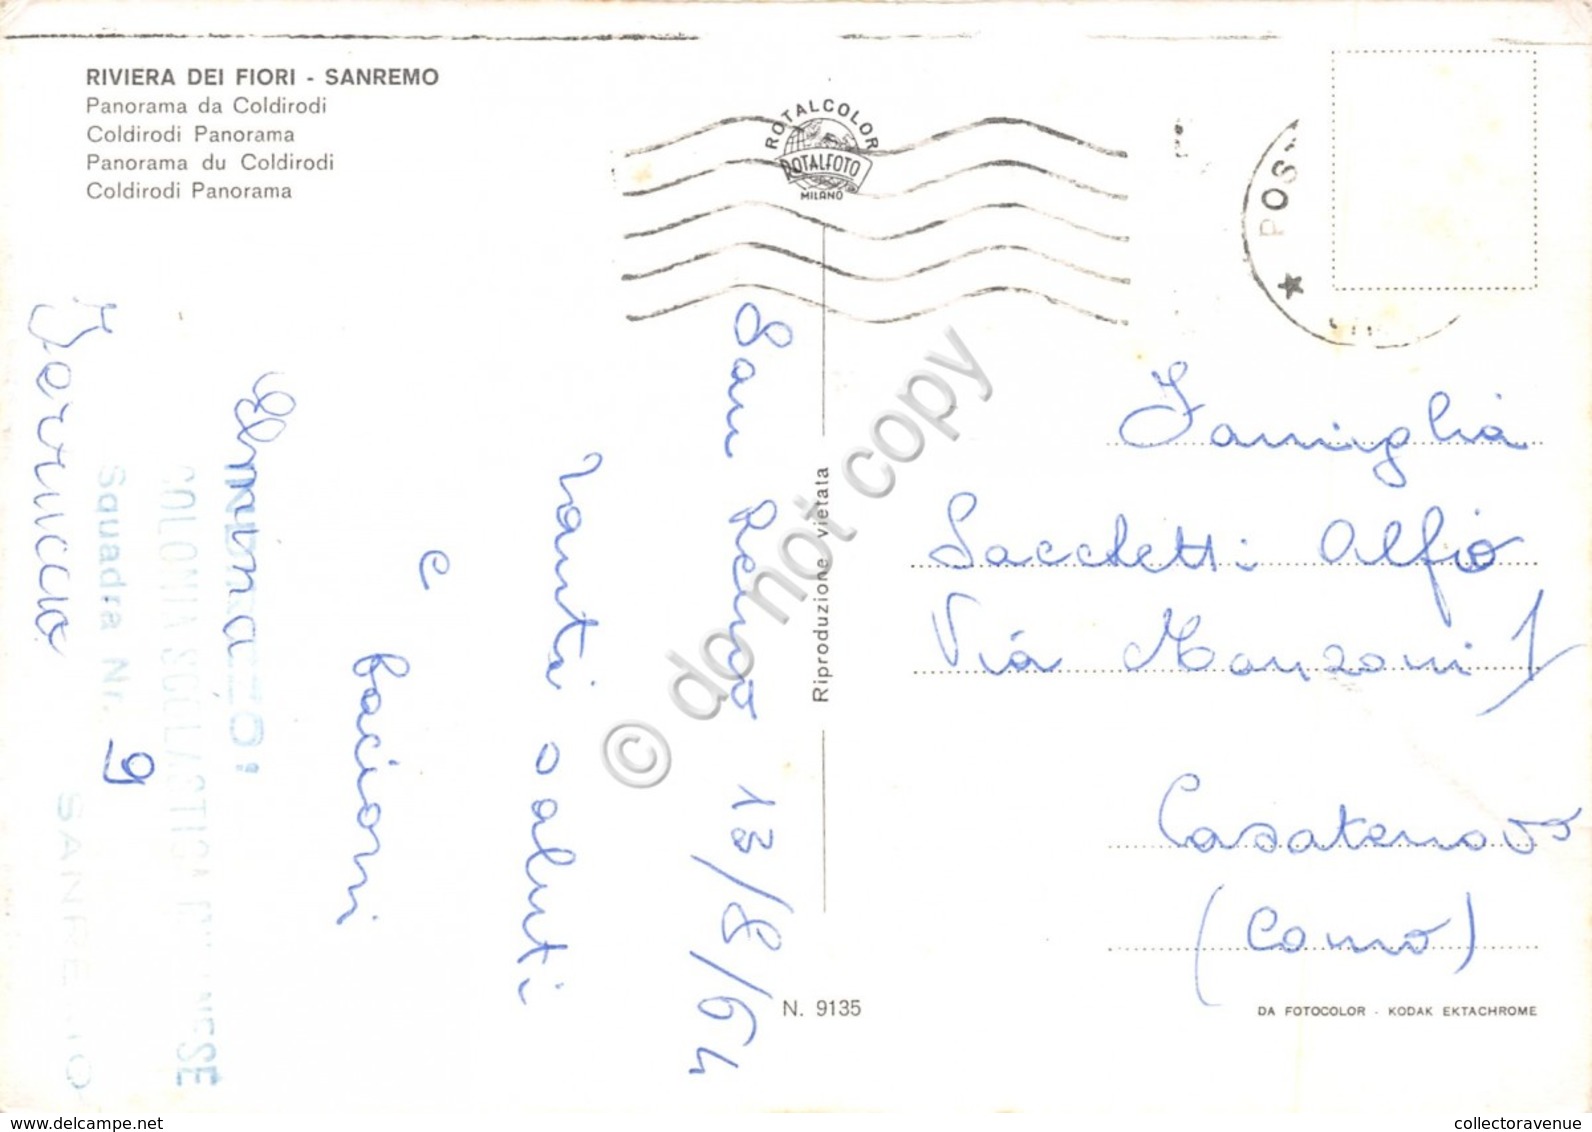 RIVIERA DEI FIORI - SANREMO
Panorama da Coldirodi
Coldirodi Panorama
Panorama du Coldirodi
Coldirodi Panorama
ROTALCOLOR
ROTALFOTO
MILANO
POS
San Remo 13/8/64
tanti saluti
e
bacioni
Ferruccio
COLONIA SCOLASTICA
Squadra Nr. 9
SANREMO
Riproduzione vietata
Famiglia
Sacchetti Alfio
Via Manzoni 1
Casatenovo
(Como)
N. 9135
DA FOTOCOLOR - KODAK EKTACHROME
© do not copy
www.delcampe.net
collectoravenue